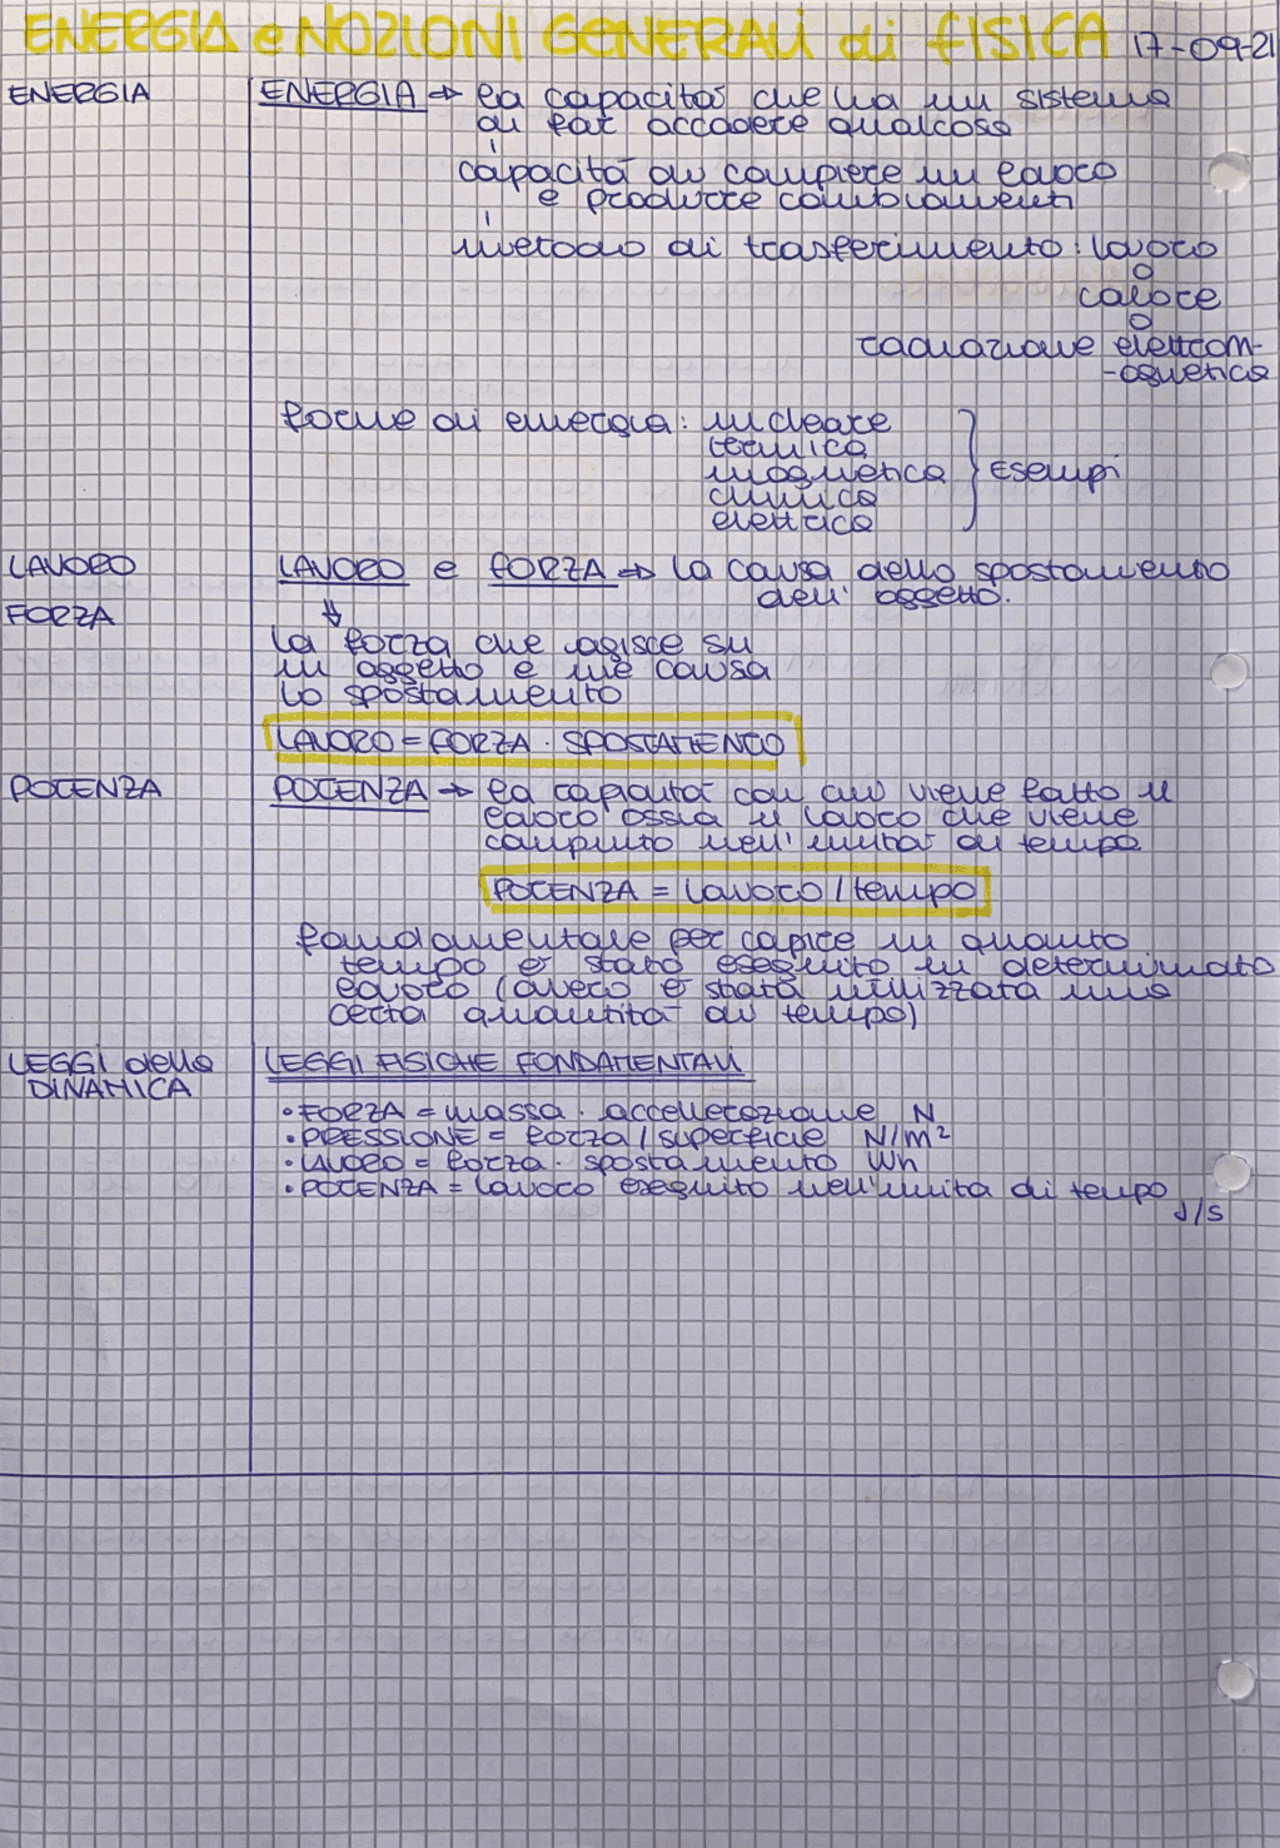 ENERGIA e NOZIONI GENERALI di FISICA 17-09-21
ENERGIA
ENERGIA → la capacità che ha un sistema
di far accadere qualcosa
capacità di compiere un lavoro
e produrre cambiamenti
metodo di trasferimento: lavoro
o
calore
o
radiazione elettrom-
-agnetica
forme di energia: nucleare
termica
magnetica } Esempi
chimica
elettrica
LAVORO
LAVORO e FORZA ⇒ la causa dello spostamento
dell'oggetto.
FORZA
⇓
la forza che agisce su
un oggetto e ne causa
lo spostamento
LAVORO = FORZA · SPOSTAMENTO
POTENZA
POTENZA → la capacità con cui viene fatto il
lavoro ossia il lavoro che viene
compiuto nell'unità di tempo
POTENZA = lavoro / tempo
fondamentale per capire in quanto
tempo è stato eseguito un determinato
lavoro (ovvero è stata utilizzata una
certa quantità di tempo)
LEGGI della
DINAMICA
LEGGI FISICHE FONDAMENTALI
• FORZA = massa · accellerazione N
• PRESSIONE = forza / superficie N/m²
• LAVORO = forza · spostamento Wh
• POTENZA = lavoro eseguito nell'unità di tempo
J/s